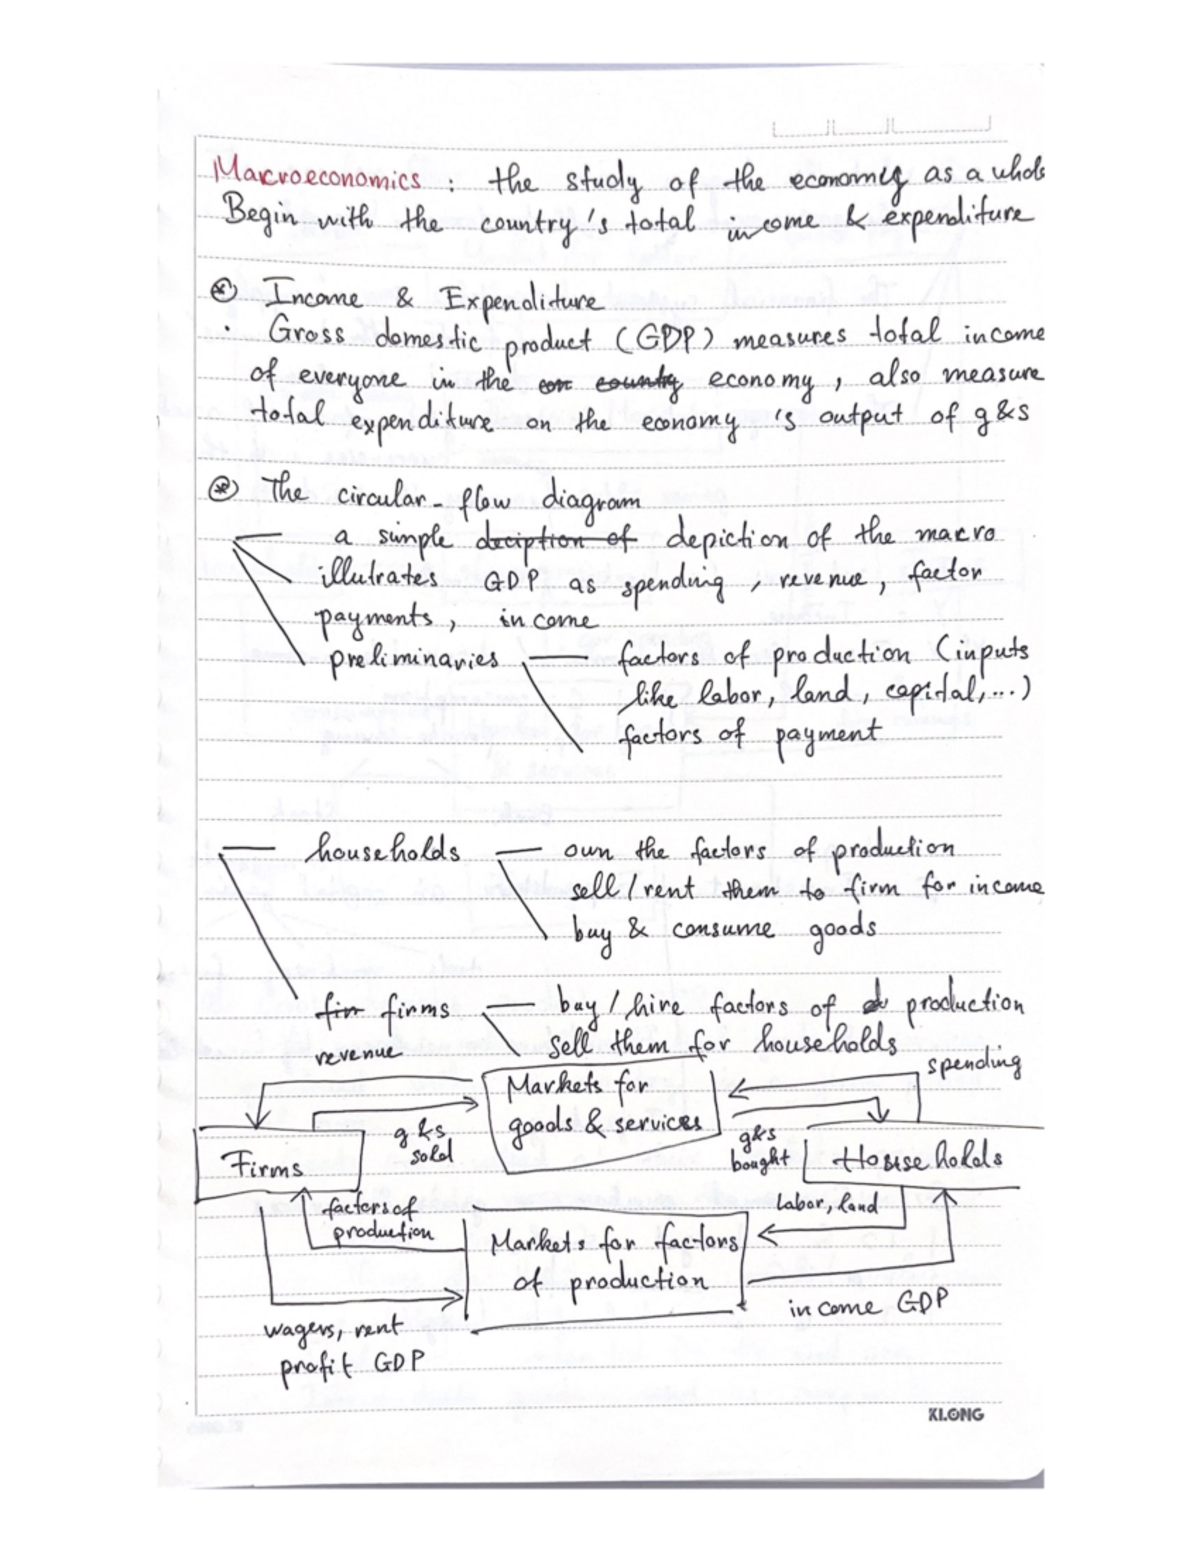 Macroeconomics : the study of the economy as a whole
Begin with the country's total income & expenditure
⊛ Income & Expenditure
· Gross domestic product (GDP) measures total income
of everyone in the con county economy, also measure
total expenditure on the economy's output of g&s
⊛ The circular-flow diagram
a simple deciption of depiction of the macro
illutrates GDP as spending, revenue, factor
payments, income
preliminaries factors of production (inputs
like labor, land, capital,...)
factors of payment
households own the factors of production
sell/rent them to firm for income
buy & consume goods
fir firms buy/hire factors of production
sell them for households
revenue
spending
Markets for
goods & services
g&s
sold
g&s
bought
Firms
Households
factors of
production
Labor, land
Markets for factors
of production
income GDP
wagers, rent
profit GDP
KLONG